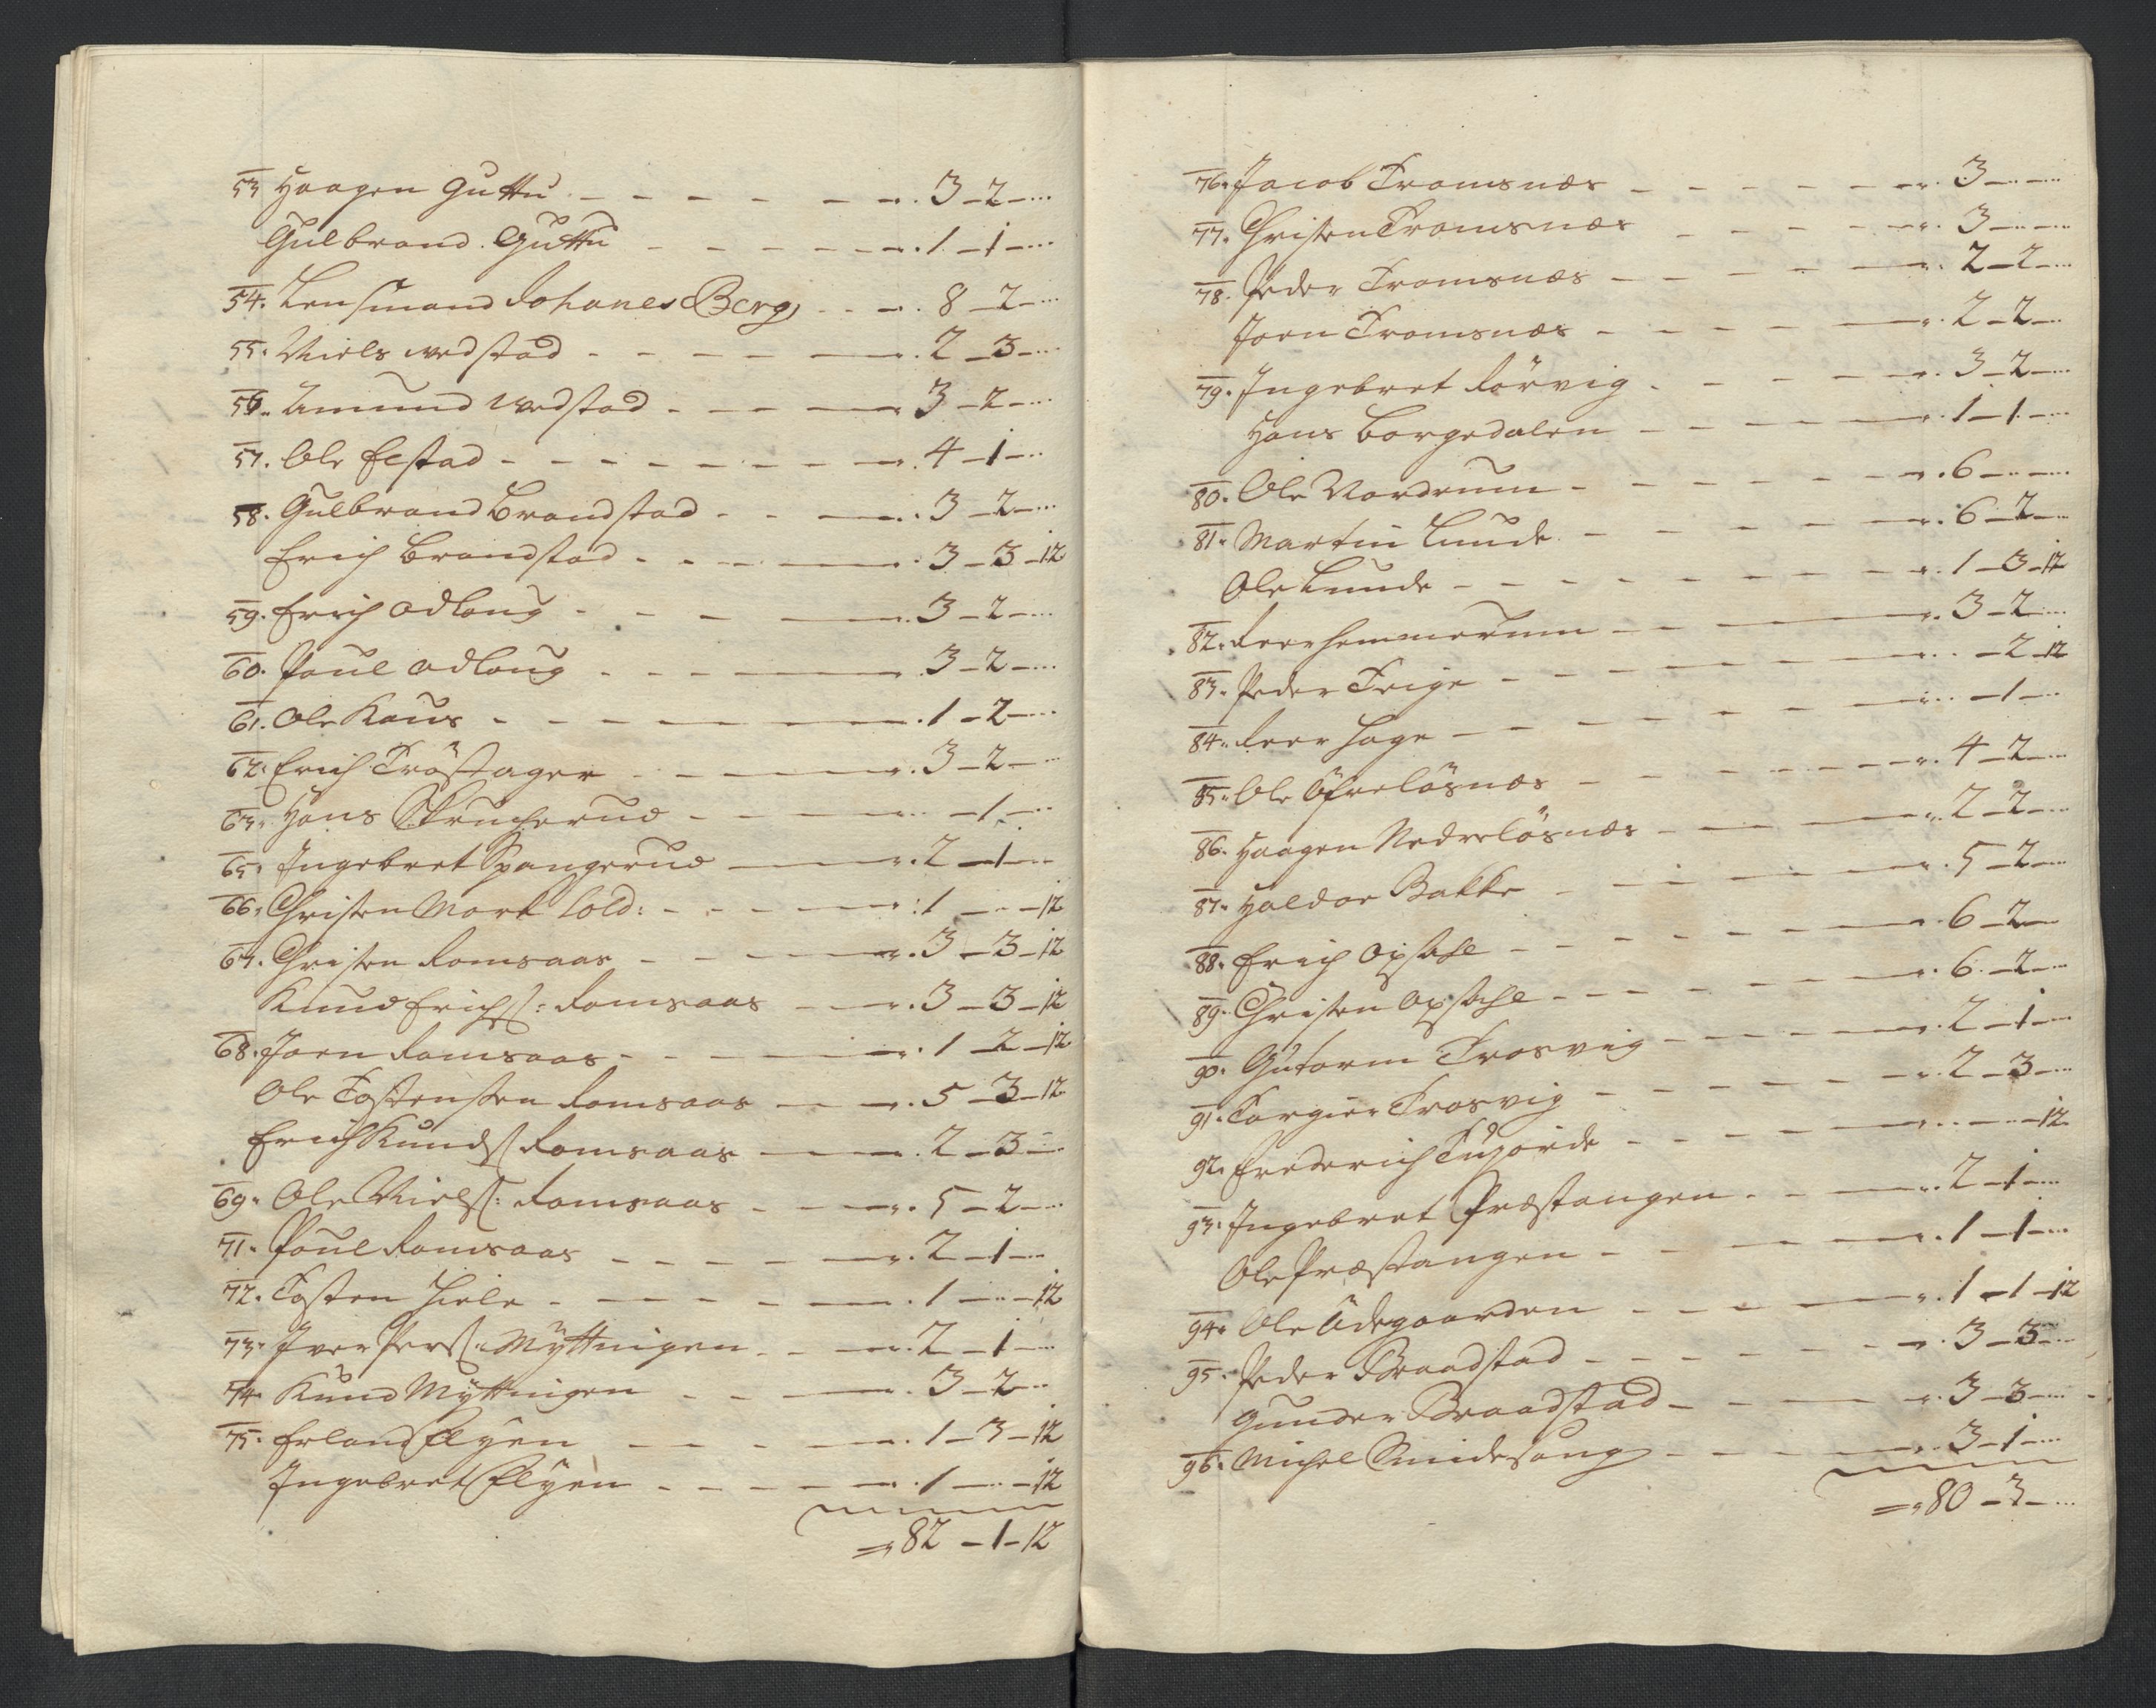 53 Haagen Guttu - - - - - - . 3 - 2 - ...
Gulbrand Guttu - - - - - - . 1 - 1 - ...
54. Lensmand Johanes Berg - - - . 8 - 2 - ...
55. Niels wedstad - - - - - . 2 - 3 - ...
56. Amund wedstad - - - - 3 - 2 - ...
57. Ole Eestad - - - - - - - . 4 - 1 - ...
58. Gulbrand Brandstad - - - . 3 - 2 - ...
Erich Brandstad - - - - . 3 - 3 - 12
59. Erich odlaug - - - - . 3 - 2 - ...
60. Poul odlaug - - - - - . 3 - 2 - ...
61. Ole Kaus - - - - - - . 1 - 2 - ...
62. Erich Tröstager - - - - . 3 - 2 - ...
63. Hans Strucherud - - - - - 1 - ...
65. Ingebret Spangerud - - . 2 - 1 - ...
66. Christen Mork Sold: - - - - : 1 - ... - 12
67. Christen Romsaas - - - - . 3 - 3 - 12
Knud Erichss: Romsaas - - . 3 - 3 - 12
68. Joen Romsaas - - - - . 1 - 2 - 12
Ole Tostensen Romsaas - - . 5 - 3 - 12
Erich Knuds Romsaas - - . 2 - 3 - ...
69. Ole Nielss: Romsaas - - - . 5 - 2 - ...
71. Poul Romsaas - - - - - . 2 - 1 - ...
72. Tosten Hiele - - - - - . 1 - ... - 12
73. Iver Perss: Myttingen - - . 2 - 1 - ...
74. Knud Myttingen - - - . 3 - 2 - ...
75. Erland Elyen - - - - . 1 - 3 - 12
Ingebret Elyen - - - - - . 1 - ... - 12
= 82 - 1 - 12
76. Jacob Tromsnæs - - - - - - . 3 - ... - ...
77. Christen Tromsnæs - - - - . 3 - ... - ...
78. Peder Tromsnæs - - - - - . 2 - 2 - ...
Joen Tromsnæs - - - - - . 2 - 2 - ...
79. Ingebret Rörvig - - - - . 3 - 2 - ...
Hans Borgedalen - - - - - . 1 - 1 - ...
80. Ole Nordrum - - - - - - . 6 - ... - ...
81. Martin Lunde - - - - - . 6 - 2 - ...
Ole Lunde - - - - - - - . 1 - 3 - 12
82. Roer Hemmerum - - - - . 3 - 2 - ...
83. Peder Teige - - - - - - . - 2 - 12
84. Roer Hage - - - - - - - . - 1 - ...
85. Ole Öfrelösnæs - - - - - - . 4 - 2 - ...
86. Haagen Nedrelösnæs - - - . 2 - 2 - ...
87. Haldor Bakke - - - - - . 5 - 2 - ...
88. Erich Opsahl - - - - - - . 6 - 2 -
89. Christen Opsahl - - - - - - . 6 - 2 - ...
90. Gutorm Trosvig - - - - - . 2 - 1 - ...
91. Torgier Trosvig - - - - - . 2 - 3 - ...
92. Frederich - - - - - . - ... - 12
93. Ingebret Præstangen - - - . 2 - 1 - ...
Ole Præstangen - - - - - . 1 - 1 - ...
94. Ole Ödegaarden - - - - - . 1 - 1 - 12
95. Peder Braadstad - - - - - - . 3 - 3 - ...
Gunder Braadstad - - - - . 3 - 3 - ...
96. Michel Smidesang - - - - . 3 - 1 - ...
= 80 - 3 - ...